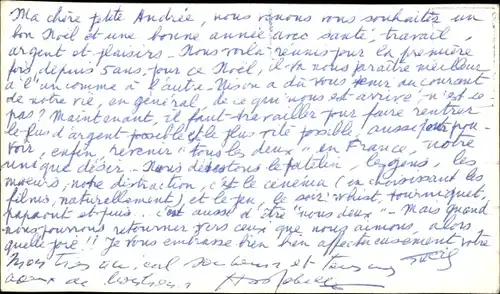 Ma chère ptite Andrée, nous venons vous souhaiter un
bon Noël et une bonne année avec santé, travail,
argent et plaisirs. Nous voilà réunis pour la première
fois depuis 5 ans, pour ce Noël, il va nous paraître meilleur
à l'un comme à l'autre. a dû vous tenir au courant
de notre vie, en général, de ce qui nous est arrivé n'est-ce
pas? Maintenant, il faut travailler pour faire rentrer
le plus d'argent possible et le plus vite possible, aussi pour pou-
voir, enfin, revenir "tous les deux" en France, notre
unique désir. Nous détestons le patelin, les gens, les
mœurs, notre distraction, c'est le cinéma (en choisissant les
films, naturellement) et le jeu, le soir
et puis... c'est aussi d'être "nous deux" - Mais quand
nous pourrons retourner vers ceux que nous aimons, alors
quelle joie!! Je vous embrasse bien bien affectueusement votre
et